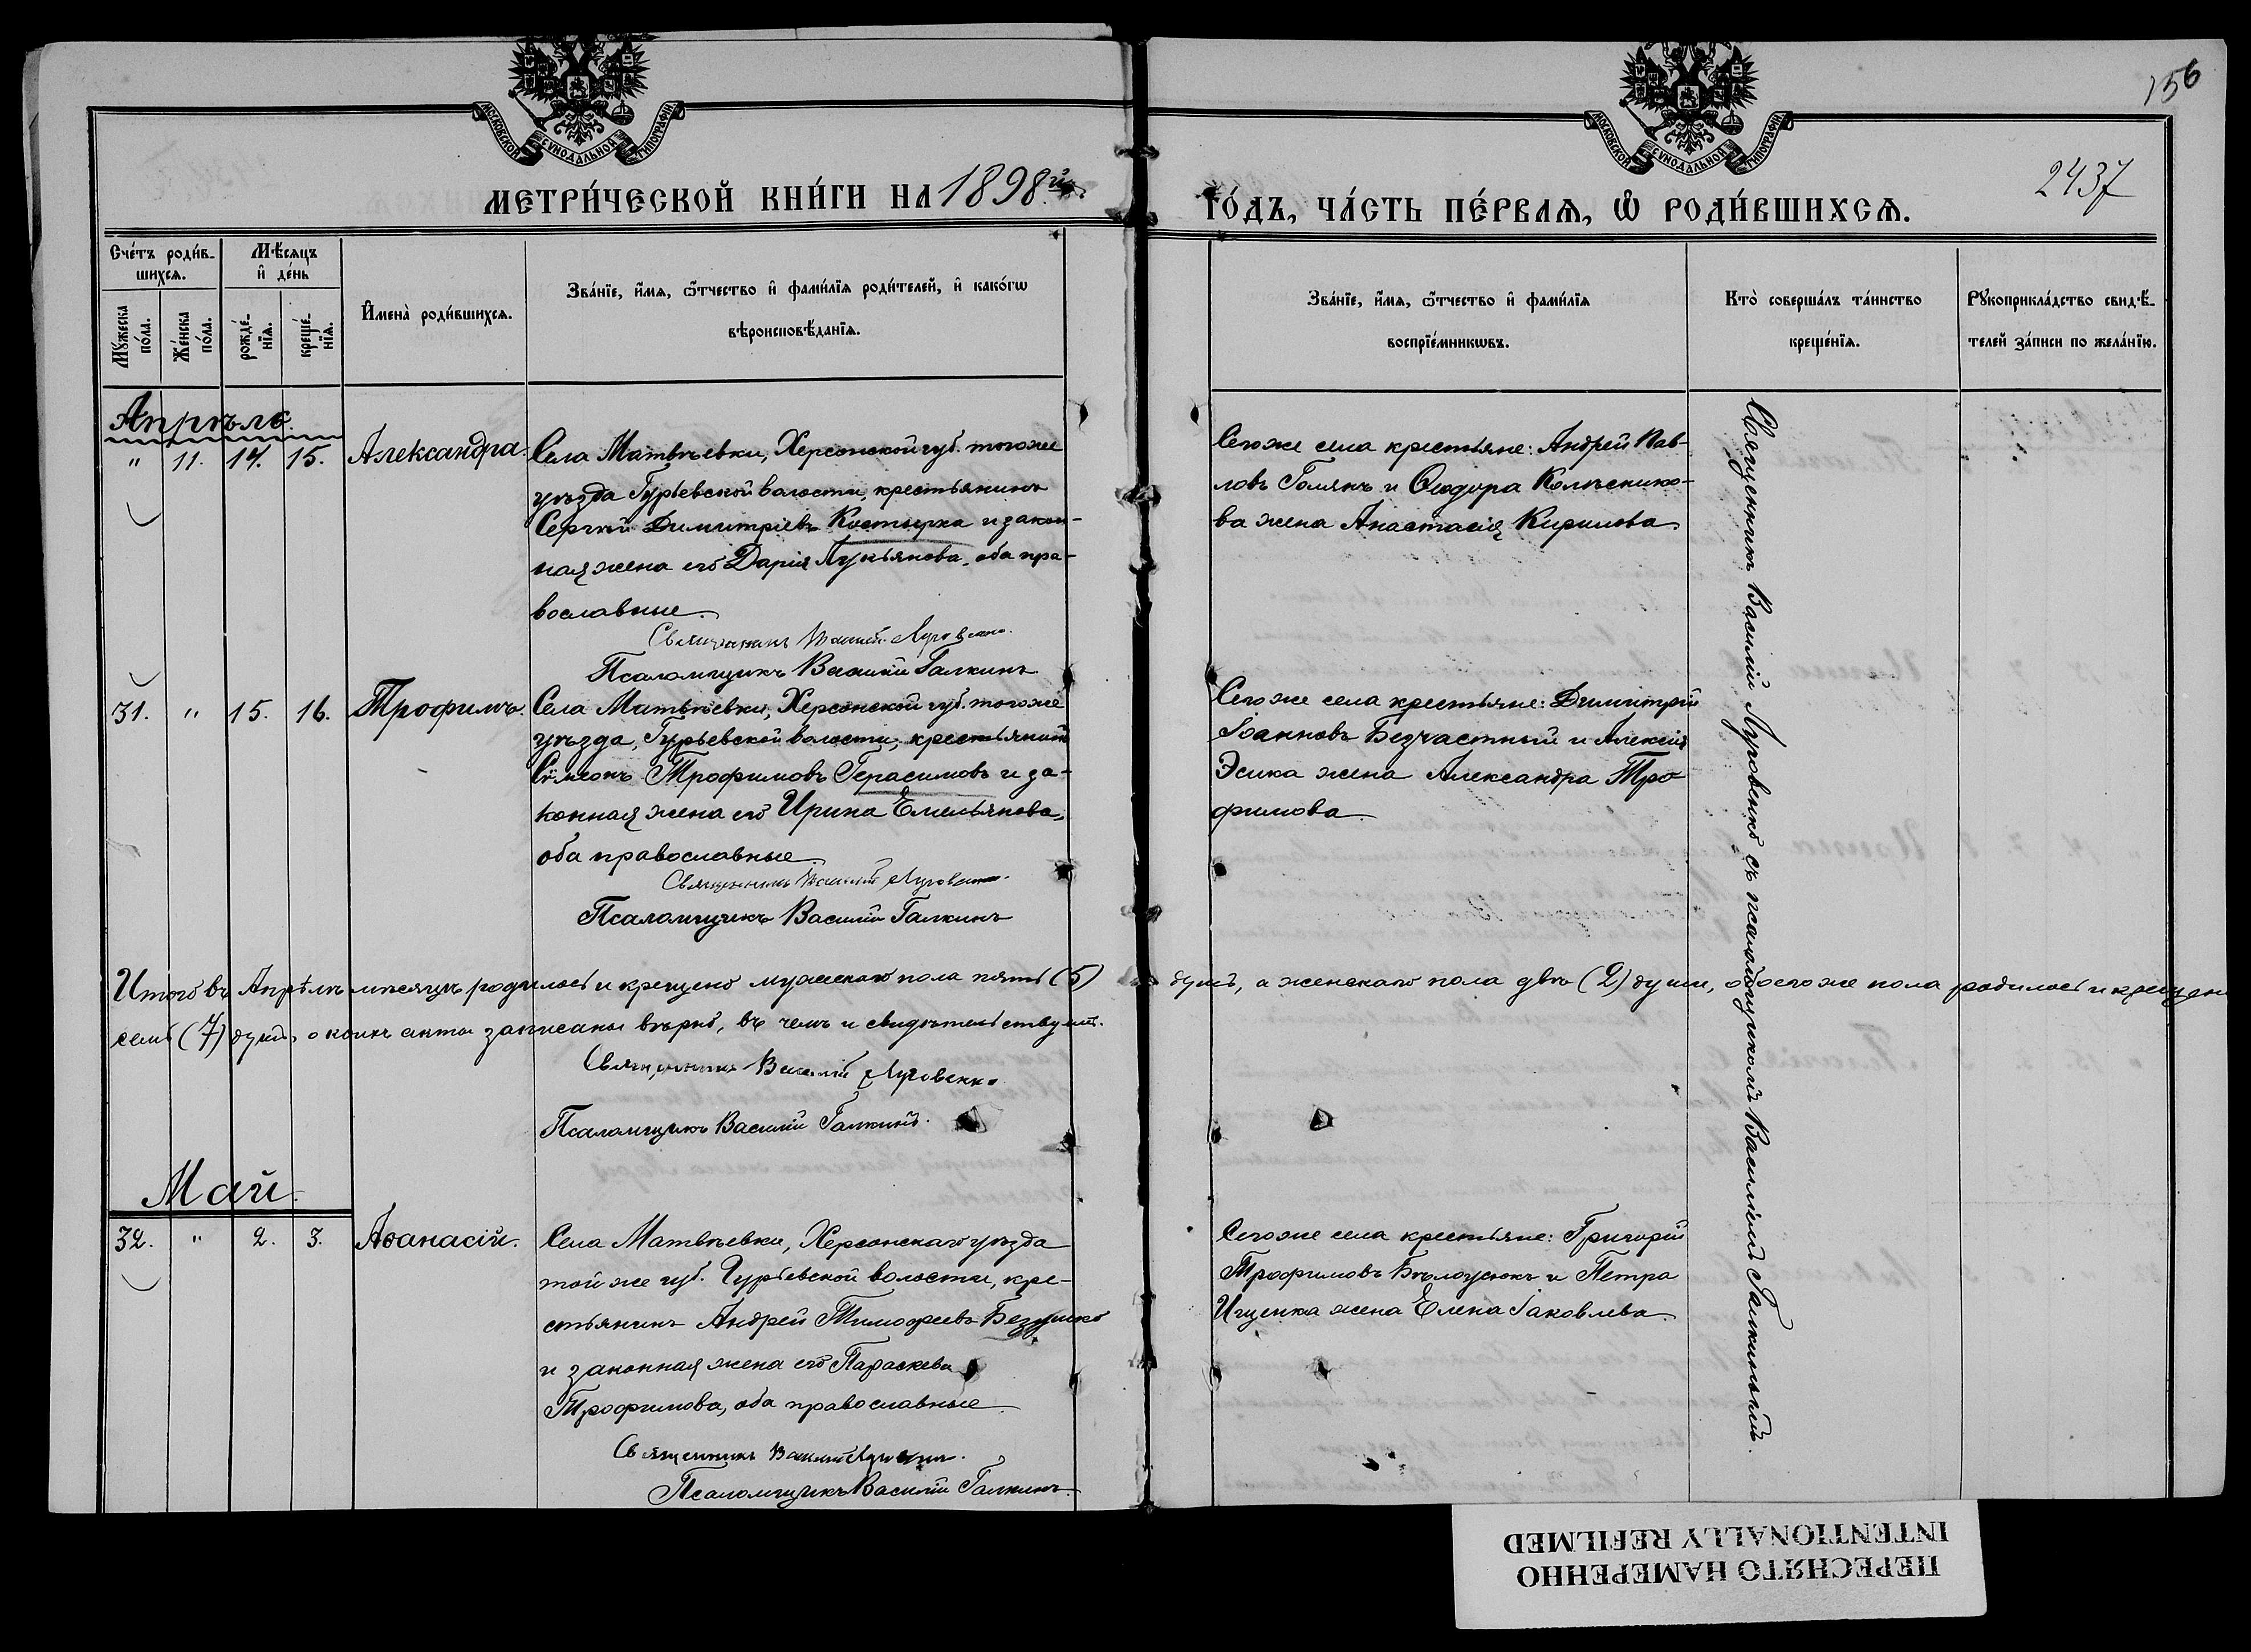 156
2437
МОСКОВСКОЙ СУНОДАЛЬНОЙ ТИПОГРАФІИ
МОСКОВСКОЙ СУНОДАЛЬНОЙ ТИПОГРАФІИ
МЕТРИ́ЧЕСКОЙ КНИ́ГИ НА 1898й
ГО́ДЪ, ЧА́СТЬ ПЕ́РВАѦ, Ѡ҆ РОДИ́ВШИХСѦ.
Сче́тъ роди́в-
шихсѧ.
Мѣ́сѧцъ
и҆ де́нь
Мꙋ́жеска
по́ла.
Же́нска
по́ла.
рожде́-
нїѧ.
креще́-
нїѧ.
И҆мена̀ роди́вшихсѧ.
Зва́нїе, и҆́мѧ, ѻ҆́тчество и҆ фами́лїѧ роди́телей, и҆ како́гѡ
вѣроисповѣ́данїѧ.
Зва́нїе, и҆́мѧ, ѻ҆́тчество и҆ фами́лїѧ
воспрїе́мникѡвъ.
Кто̀ соверша́лъ та́инство
креще́нїѧ.
Рꙋкоприкла́дство свидѣ́-
телей за́писи по жела́нїю.
Апрѣль.
" 11. 14. 15. Александра.
Села Матвѣевки, Херсонской губ. тогоже
уѣзда Гурьевской волости, крестьянинъ
Сергѣй Димитріевъ Костырка и закон-
ная жена его Дарія Лукьянова, оба пра-
вославные.
Священникъ Василій Луговенко.
Псаломщикъ Василій Галкинъ
Сегоже села крестьяне: Андрей Пав-
ловъ Голякъ и Ѳеодора Колѣснико-
ва жена Анастасія Кирилова
31. " 15. 16. Трофимъ.
Села Матвѣевки, Херсонской губ. тогоже
уѣзда, Гурьевской волости, крестьянинъ
Сѵмеонъ Трофимовъ Герасимовъ и за-
конная жена его Ирина Емельянова,
оба православные.
Священникъ Василій Луговенко.
Псаломщикъ Василій Галкинъ
Сегоже села крестьяне: Димитрій
Іоанновъ Безчастный и Алексія
Эсика жена Александра Тро
фимова.
Итого въ Апрѣлѣ мѣсяцѣ родилось и крещено мужескаго пола пять (5) душъ, а женскаго пола двѣ (2) души, обоегоже пола родилось и крещен
семь (7) душъ, о коихъ акты записаны вѣрно, въ чемъ и свидѣтельствуемъ.
Священникъ Василій Луговенко
Псаломщикъ Василій Галкинъ.
Май.
32. " 2. 3. Аѳанасій.
Села Матвѣевки, Херсонскаго уѣзда
той же губ. Гурьевской волости, кре-
стьянинъ Андрей Тимофеевъ
и законная жена его Параскева
Трофимова, оба православные.
Священникъ Василій Луговенко.
Псаломщикъ Василій Галкинъ.
Сегоже села крестьяне: Григорій
Трофимовъ Бѣлоусюкъ и Петра
Ищенка жена Елена Іаковлева.
Священникъ Василій Луговенко съ псаломщикомъ Василіемъ Галкинымъ.
ПЕРЕСНЯТО НАМЕРЕННО
INTENTIONALLY REFILMED